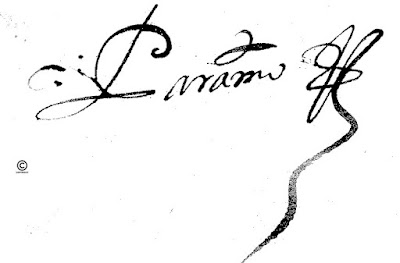 Paramo
©